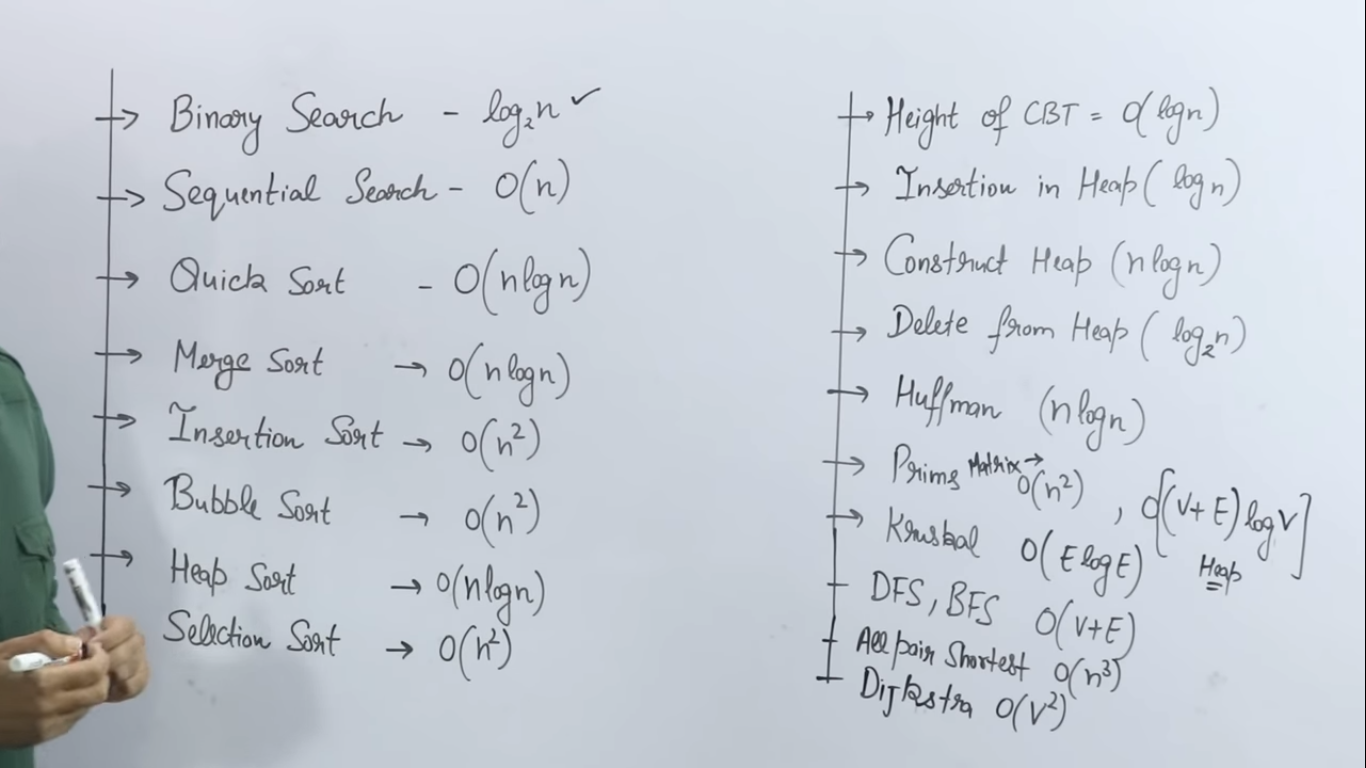 Binary Search - log₂n ✓
Sequential Search - O(n)
Quick Sort - O(nlogn)
Merge Sort → O(nlogn)
Insertion Sort → O(n²)
Bubble Sort → O(n²)
Heap Sort → O(nlogn)
Selection Sort → O(n²)
Height of CBT = O(logn)
Insertion in Heap (logn)
Construct Heap (nlogn)
Delete from Heap (log₂n)
Huffman (nlogn)
Prims Matrix → O(n²), O[(V+E)logV] Heap
Kruskal O(ElogE)
DFS, BFS O(V+E)
All pair Shortest O(n³)
Dijkstra O(V²)